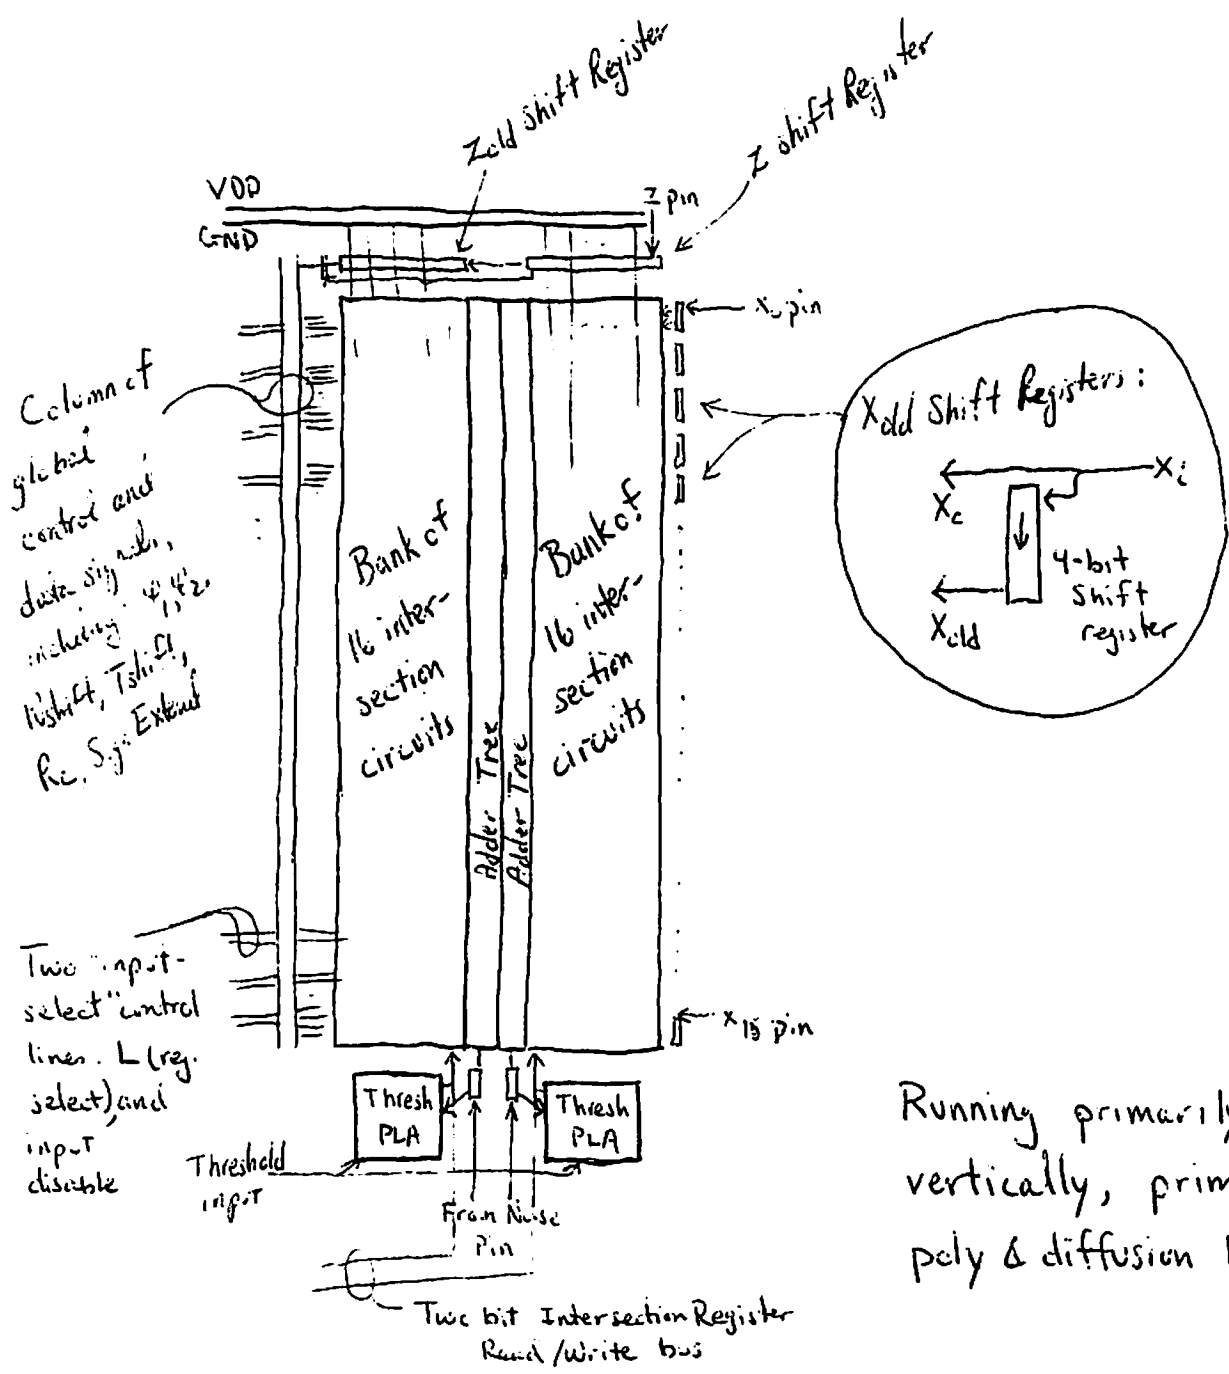 Zold Shift Register
Z shift Register
VDD
GND
Z pin
X0 pin
Column of
global
control and
data signals,
including φ1, φ2,
Tshift,
Sign Extend
Xold Shift Registers:
Xi
Xc
4-bit
shift
register
Xold
Bank of
16 inter-
section
circuits
Adder Tree
Adder Tree
Bank of
16 inter-
section
circuits
Two "input-
select" control
lines. L (reg.
select), and
input
disable
X15 pin
Thresh
PLA
Thresh
PLA
Threshold
input
From Noise
Pin
Two bit Intersection Register
Read/Write bus
Running primarily
vertically, prim
poly & diffusion